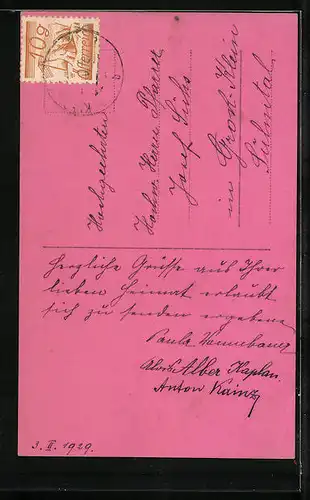 10g
Österreich
Hochgeehrten
Hochw. Herrn Pfarrer
Josef
in Groß-Klein
Sulmtal
Herzliche Grüsse aus Ihrer
lieben Heimat erlaubt
sich zu senden ergebene
Paula
Alber Kaplan
Anton Kainz
3. II. 1929.